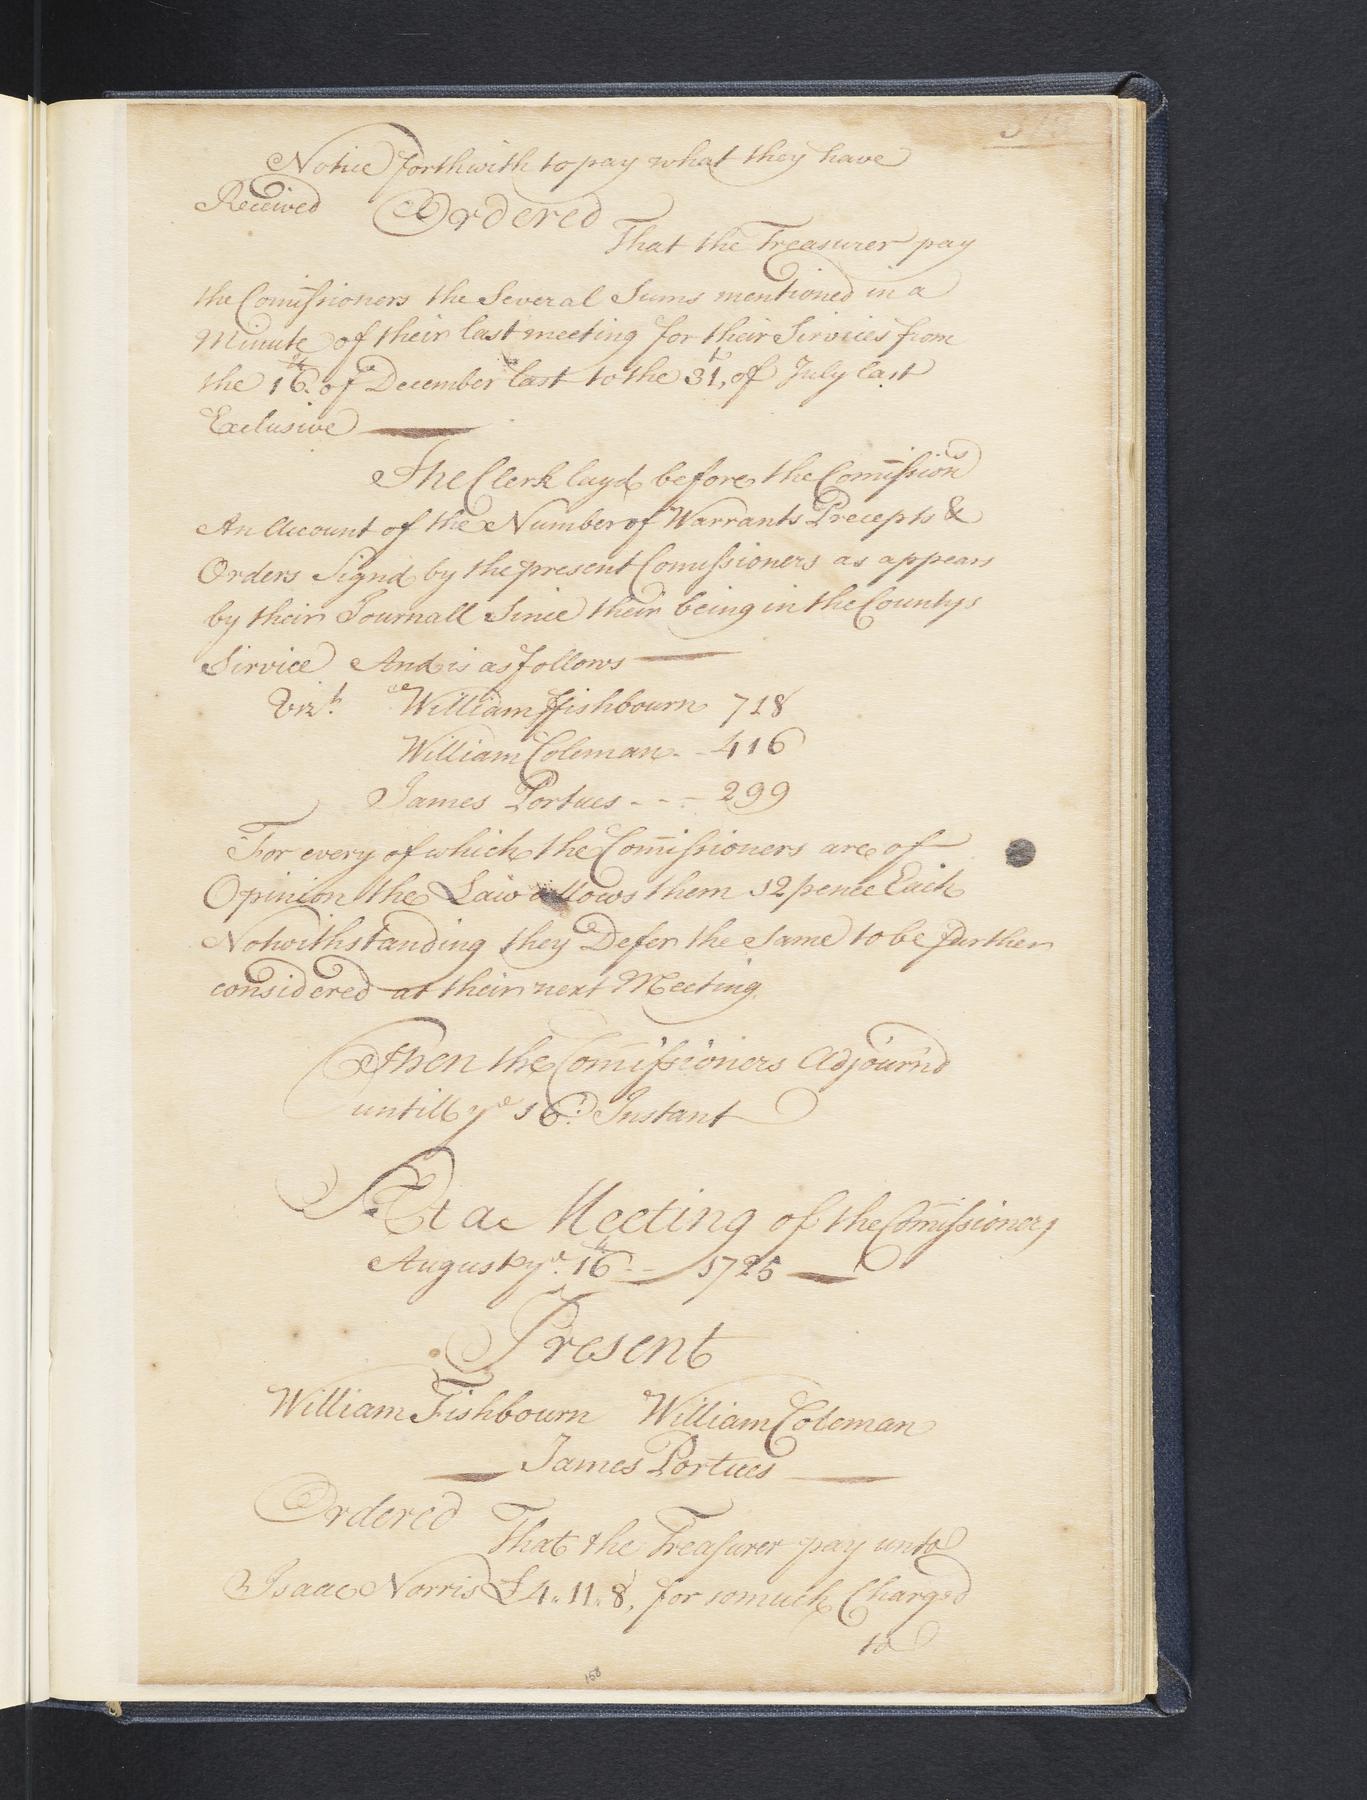 Notice forthwith to pay what they have
Received Ordered
That the Treasurer pay
the Comissioners the Several Sums mentioned in a
Minute of their last meeting for their Service from
the 16th of December last to the 31st of July last
Exclusive
The Clerk layd before the Comissionrs
An Account of the Number of Warrants Precepts &
Orders Signd by the present Comissioners as appears
by their Journall Since their being in the Countys
Service And is as follows
Vizt William Fishbourn 718
William Coleman - - 416
James Portues - - - 299
For every of which the Comissioners are of
Opinion the Law allows them 12 pence Each
Notwithstanding they Defer the same to be further
considered at their next Meeting
Then the Comissioners Adjournd
untill ye 16th Instant
At a Meeting of the Comissioners
August ye 16th 1725
Present
William Fishbourn William Coleman
James Portues
Ordered That the Treasurer pay unto
Isaac Norris £4.11.8, for somuch Chargd
to
158